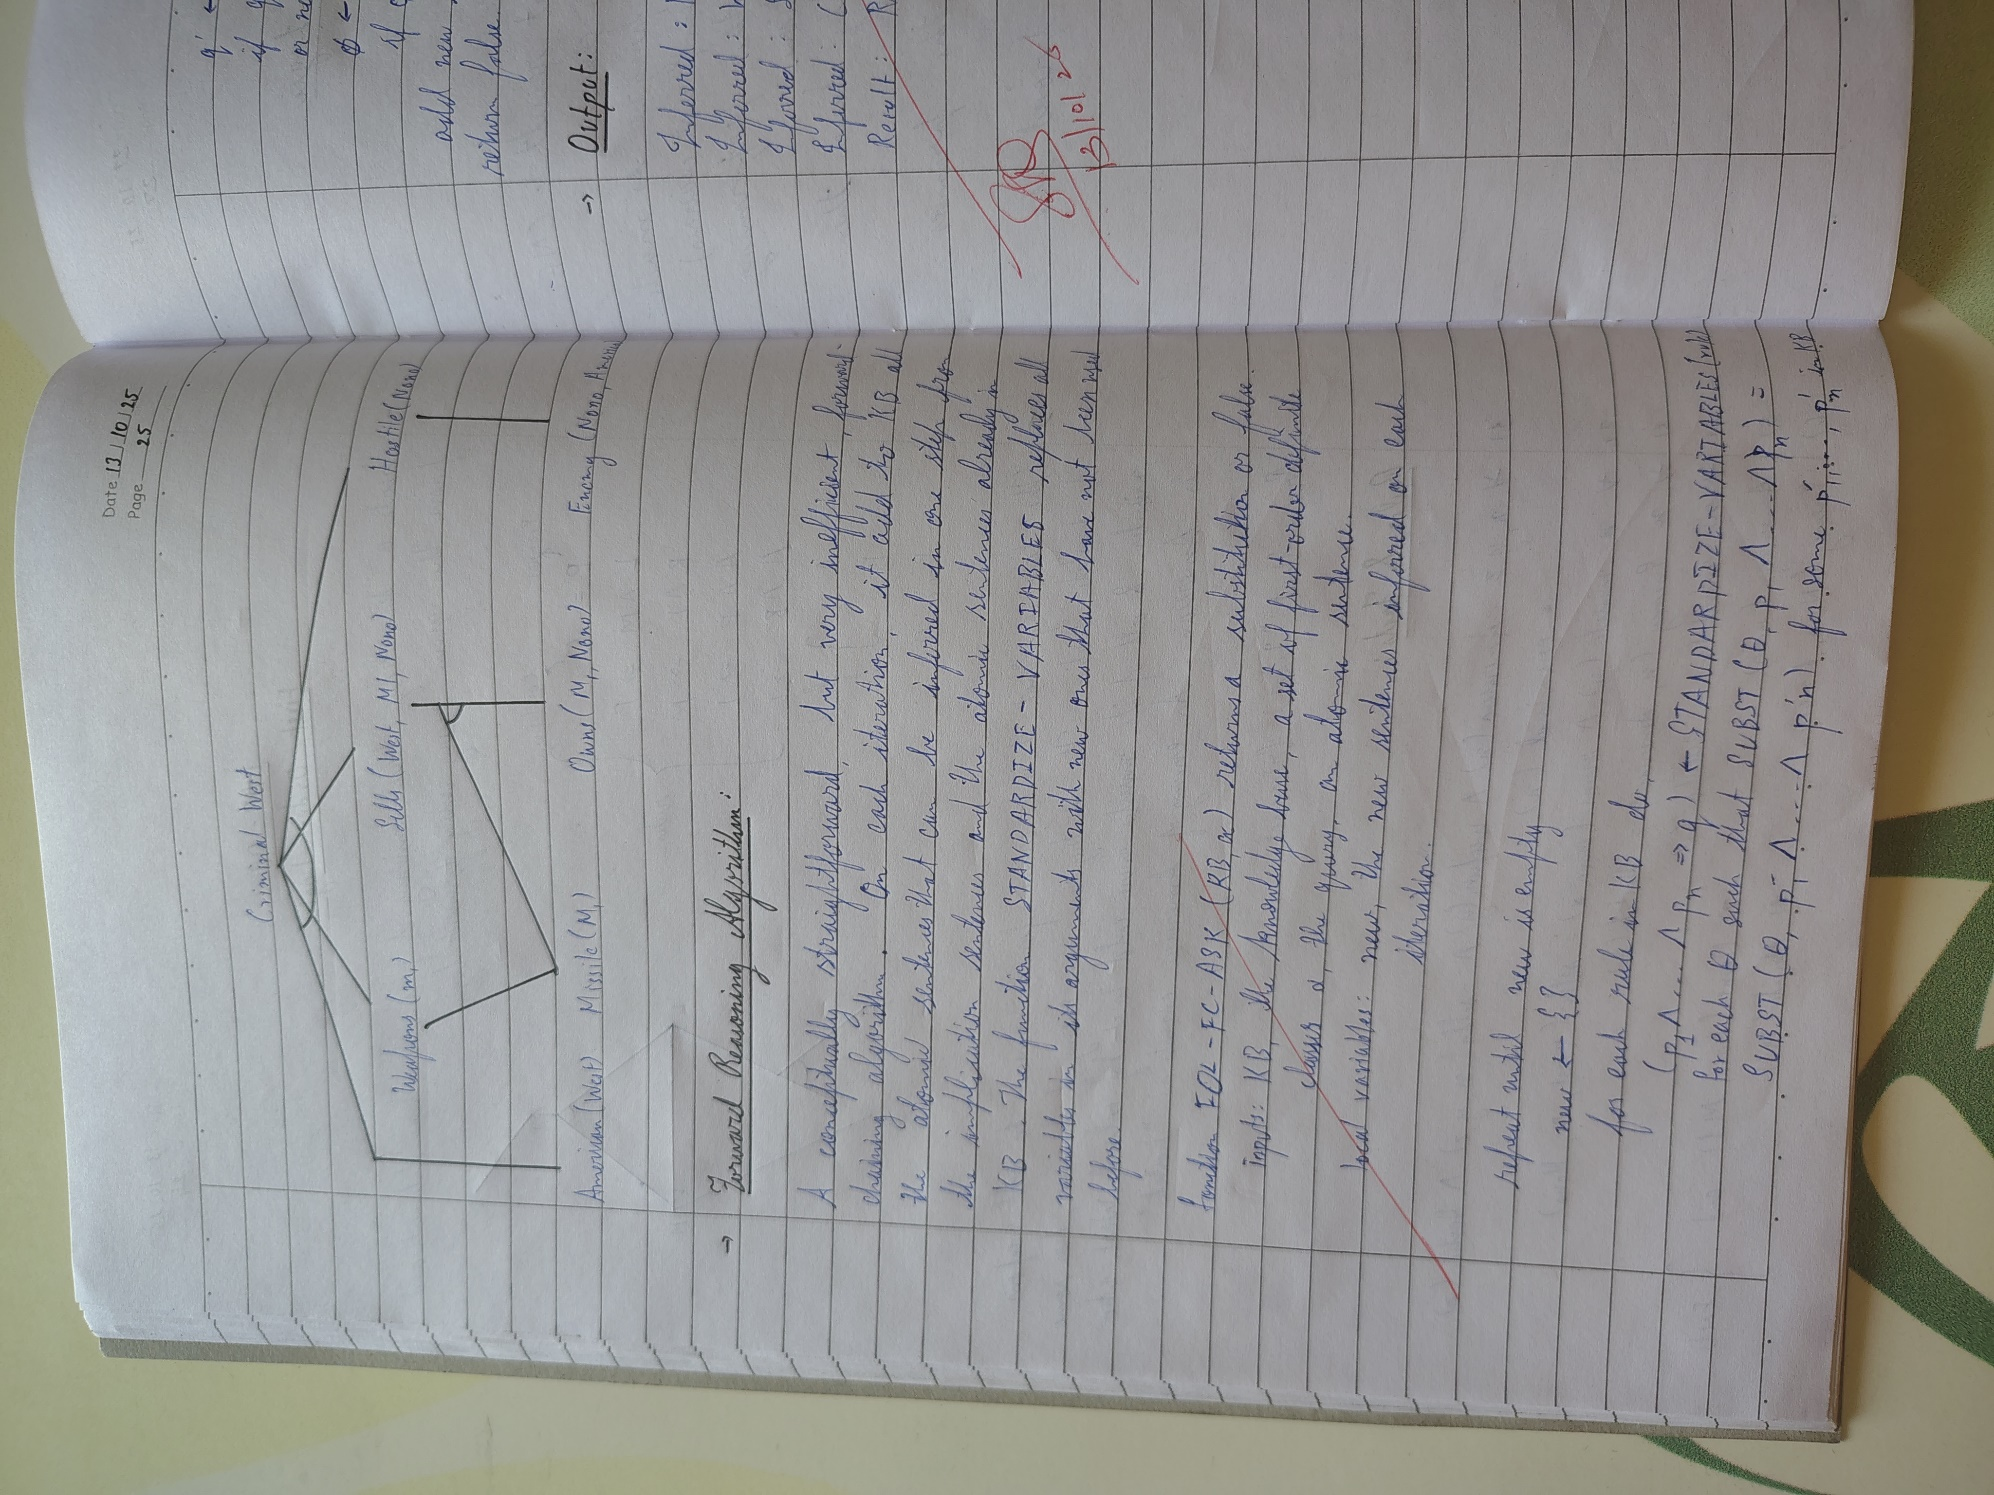 Date 13/10/25
Page 25
Criminal West
Weapons (m,) Sells (West, M1, Nono) Hostile (Nono)
American (West) Missile (M1) Owns (M1, Nono) Enemy (Nono,
→ Forward Reasoning Algorithm:
A conceptually straightforward, but very inefficient forward-
chaining algorithm. On each iteration, it add to KB all
the atomic sentences that can be inferred in one step from
the implication sentences and the atomic sentences already in
KB. The function STANDARDIZE-VARIABLES replaces all
variables in its arguments with new ones that have not been used
before.
function FOL-FC-ASK (KB, α) returns a substitution or false.
inputs: KB, the knowledge base, a set of first-order definite
clauses α, the query, an atomic sentence.
local variables: new, the new sentences inferred on each
iteration.
repeat until new is empty
new ← {}
for each rule in KB do
(p1 ∧ .... ∧ pn ⇒ q) ← STANDARDIZE-VARIABLES (rule)
for each θ such that SUBST (θ, p1 ∧ .... ∧ pn) =
SUBST (θ, p'1 ∧ .... ∧ p'n) for some p'1, ..., p'n in KB
q' ←
if
or
ϕ ←
if
add new
return false
→ Output:
Inferred :
Inferred :
Inferred :
Inferred :
Result :
13/10/25